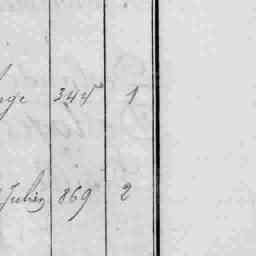 344 1
Julien 869 2